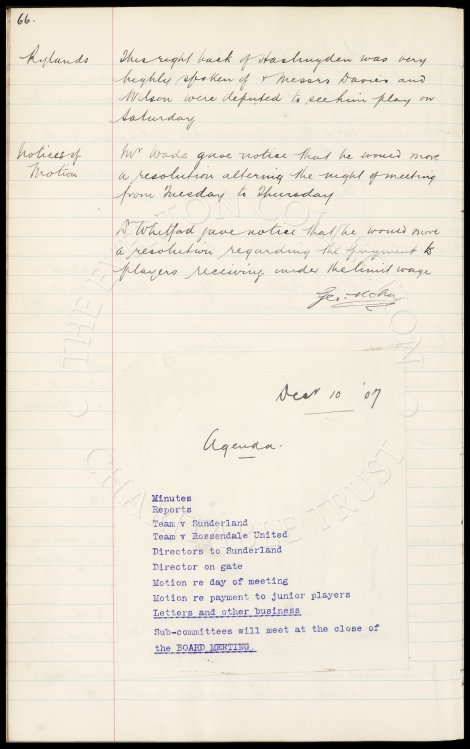 66.
Rylands
This right back of Haslingden was very
highly spoken of & Messrs Davies and
Wilson were deputed to see him play on
Saturday
Notices of
Motion
Mr Wade gave notice that he would move
a resolution altering the night of meeting
from Tuesday to Thursday
Dr Whitford gave notice that he would move
a resolution regarding the payment to
players receiving under the limit wage
Dec 10 '07
Agenda.
Minutes
Reports
Team v Sunderland
Team v Rossendale United
Directors to Sunderland
Director on gate
Motion re day of meeting
Motion re payment to junior players
Letters and other business
Sub-committees will meet at the close of
the BOARD MEETING.
THE EVERTON COLLECTION
CHARITABLE TRUST